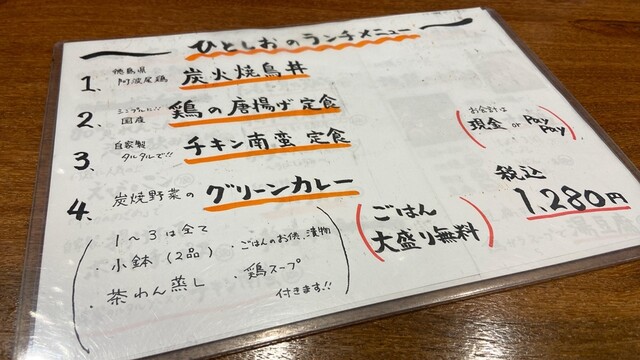 ひとしおのランチメニュー
1、徳島県 阿波尾鶏 炭火焼鳥丼
2、シンプル!! 国産 鶏の唐揚げ定食
3、自家製 タルタルで!! チキン南蛮定食
4、炭焼野菜の グリーンカレー
(1〜3は全て
・小鉢(2品)
・茶わん蒸し
・ごはんのお供、漬物
・鶏スープ
付きます!!)
(ごはん
大盛り無料)
(お会計は
現金 or PayPay)
税込
1,280円